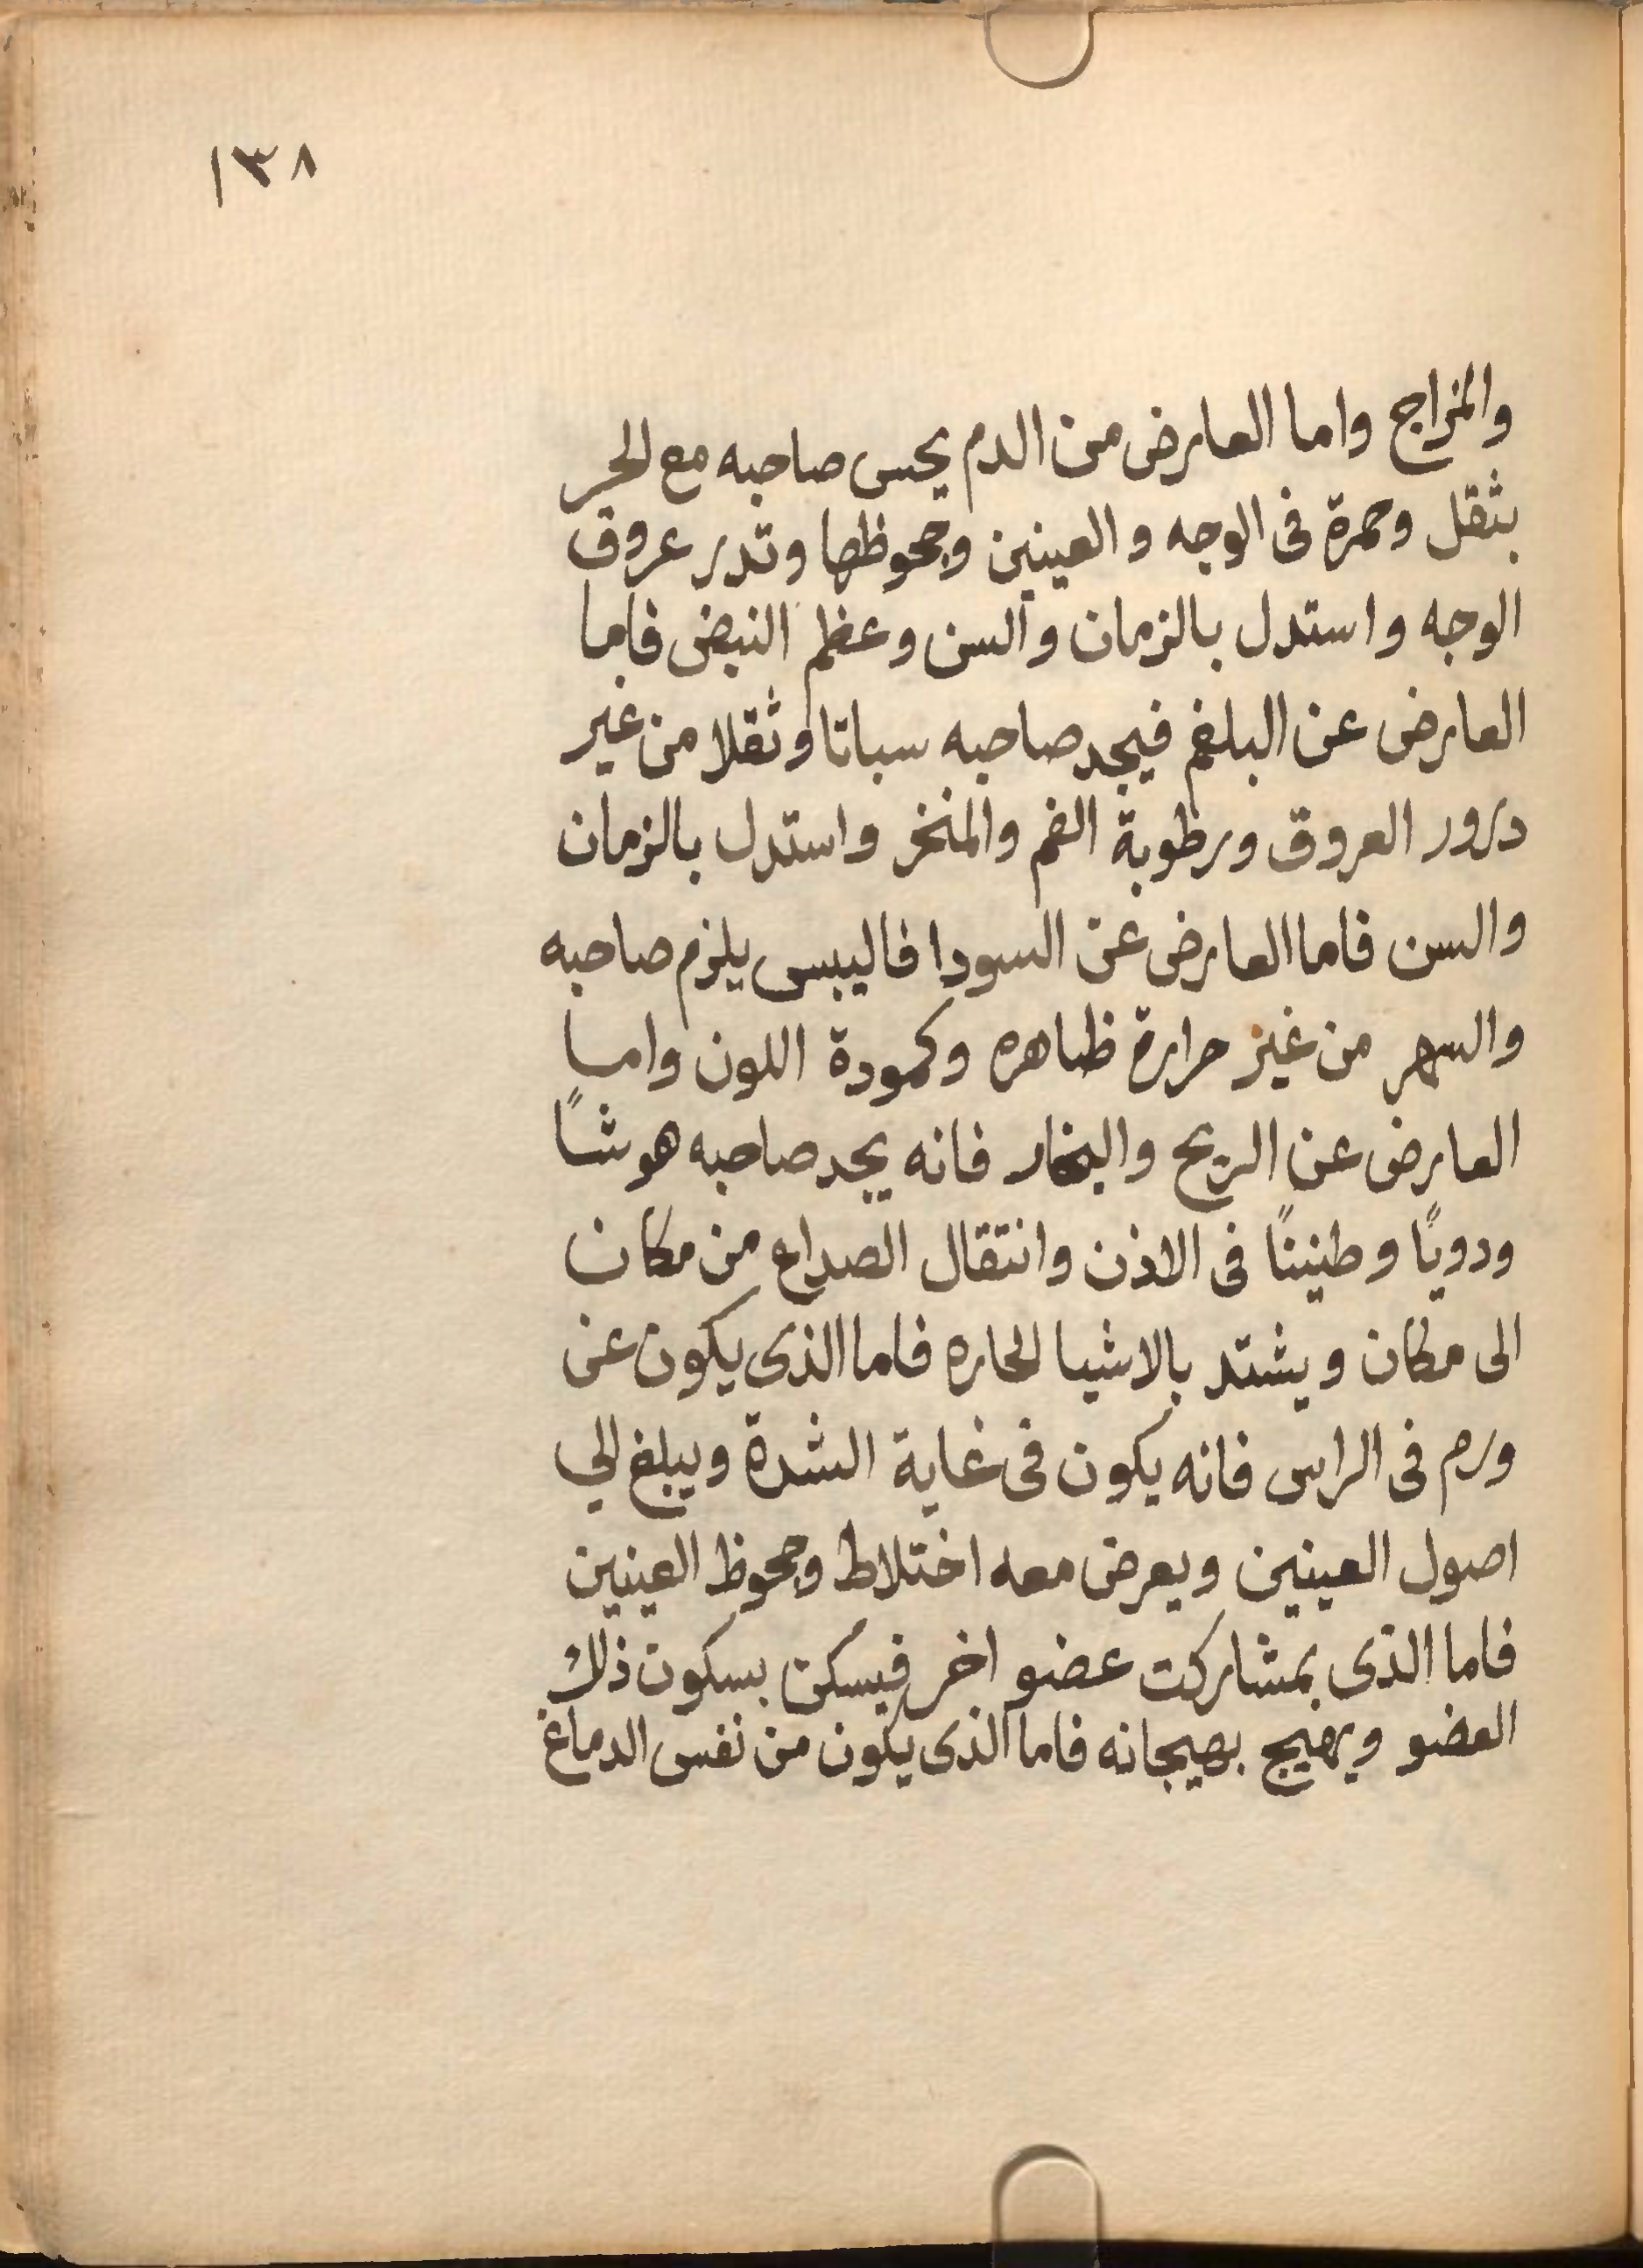 ١٣٨
والمزاج واما العارض من الدم يحس صاحبه مع الحر
بثقل وحمرة فى الوجه و العينين وجحوظها وتدر عروق
الوجه واستدل بالزمان والسن وعظم النبض فاما
العارض عن البلغم فيجد صاحبه سباتا وثقلا من غير
درور العروق ورطوبة الفم والمنخر واستدل بالزمان
والسن فاما العارض عن السودا فاليبس يلزم صاحبه
والسهر من غير حرارة ظاهره وكمودة اللون واما
العارض عن الريح والبخار فانه يجد صاحبه هوشًا
ودويًا وطنينًا فى الاذن وانتقال الصداع من مكان
الى مكان ويشتد بالاشيا الحاره فاما الذى يكون عن
ورم فى الراس فانه يكون فى غاية الشدة ويبلغ الي
اصول العينين ويعرض معه اختلاط وجحوظ العينين
فاما الذى بمشاركت عضو اخر فيسكن بسكون ذلك
العضو ويهيج بهيجانه فاما الذى يكون من نفس الدماغ